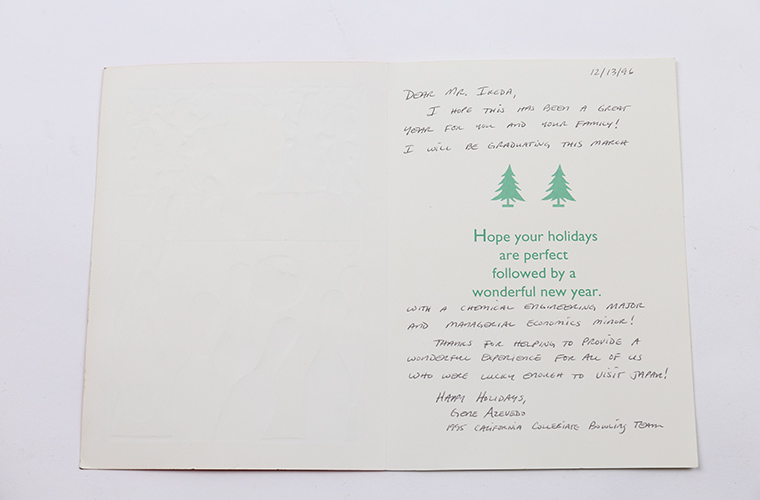 12/13/96
DEAR MR. IKEDA,
I HOPE THIS HAS BEEN A GREAT
YEAR FOR YOU AND YOUR FAMILY!
I WILL BE GRADUATING THIS MARCH
Hope your holidays
are perfect
followed by a
wonderful new year.
WITH A CHEMICAL ENGINEERING MAJOR
AND MANAGERIAL ECONOMICS MINOR!
THANKS FOR HELPING TO PROVIDE A
WONDERFUL EXPERIENCE FOR ALL OF US
WHO WERE LUCKY ENOUGH TO VISIT JAPAN!
HAPPY HOLIDAYS,
GENE AZEVEDO
1995 CALIFORNIA COLLEGIATE BOWLING TEAM